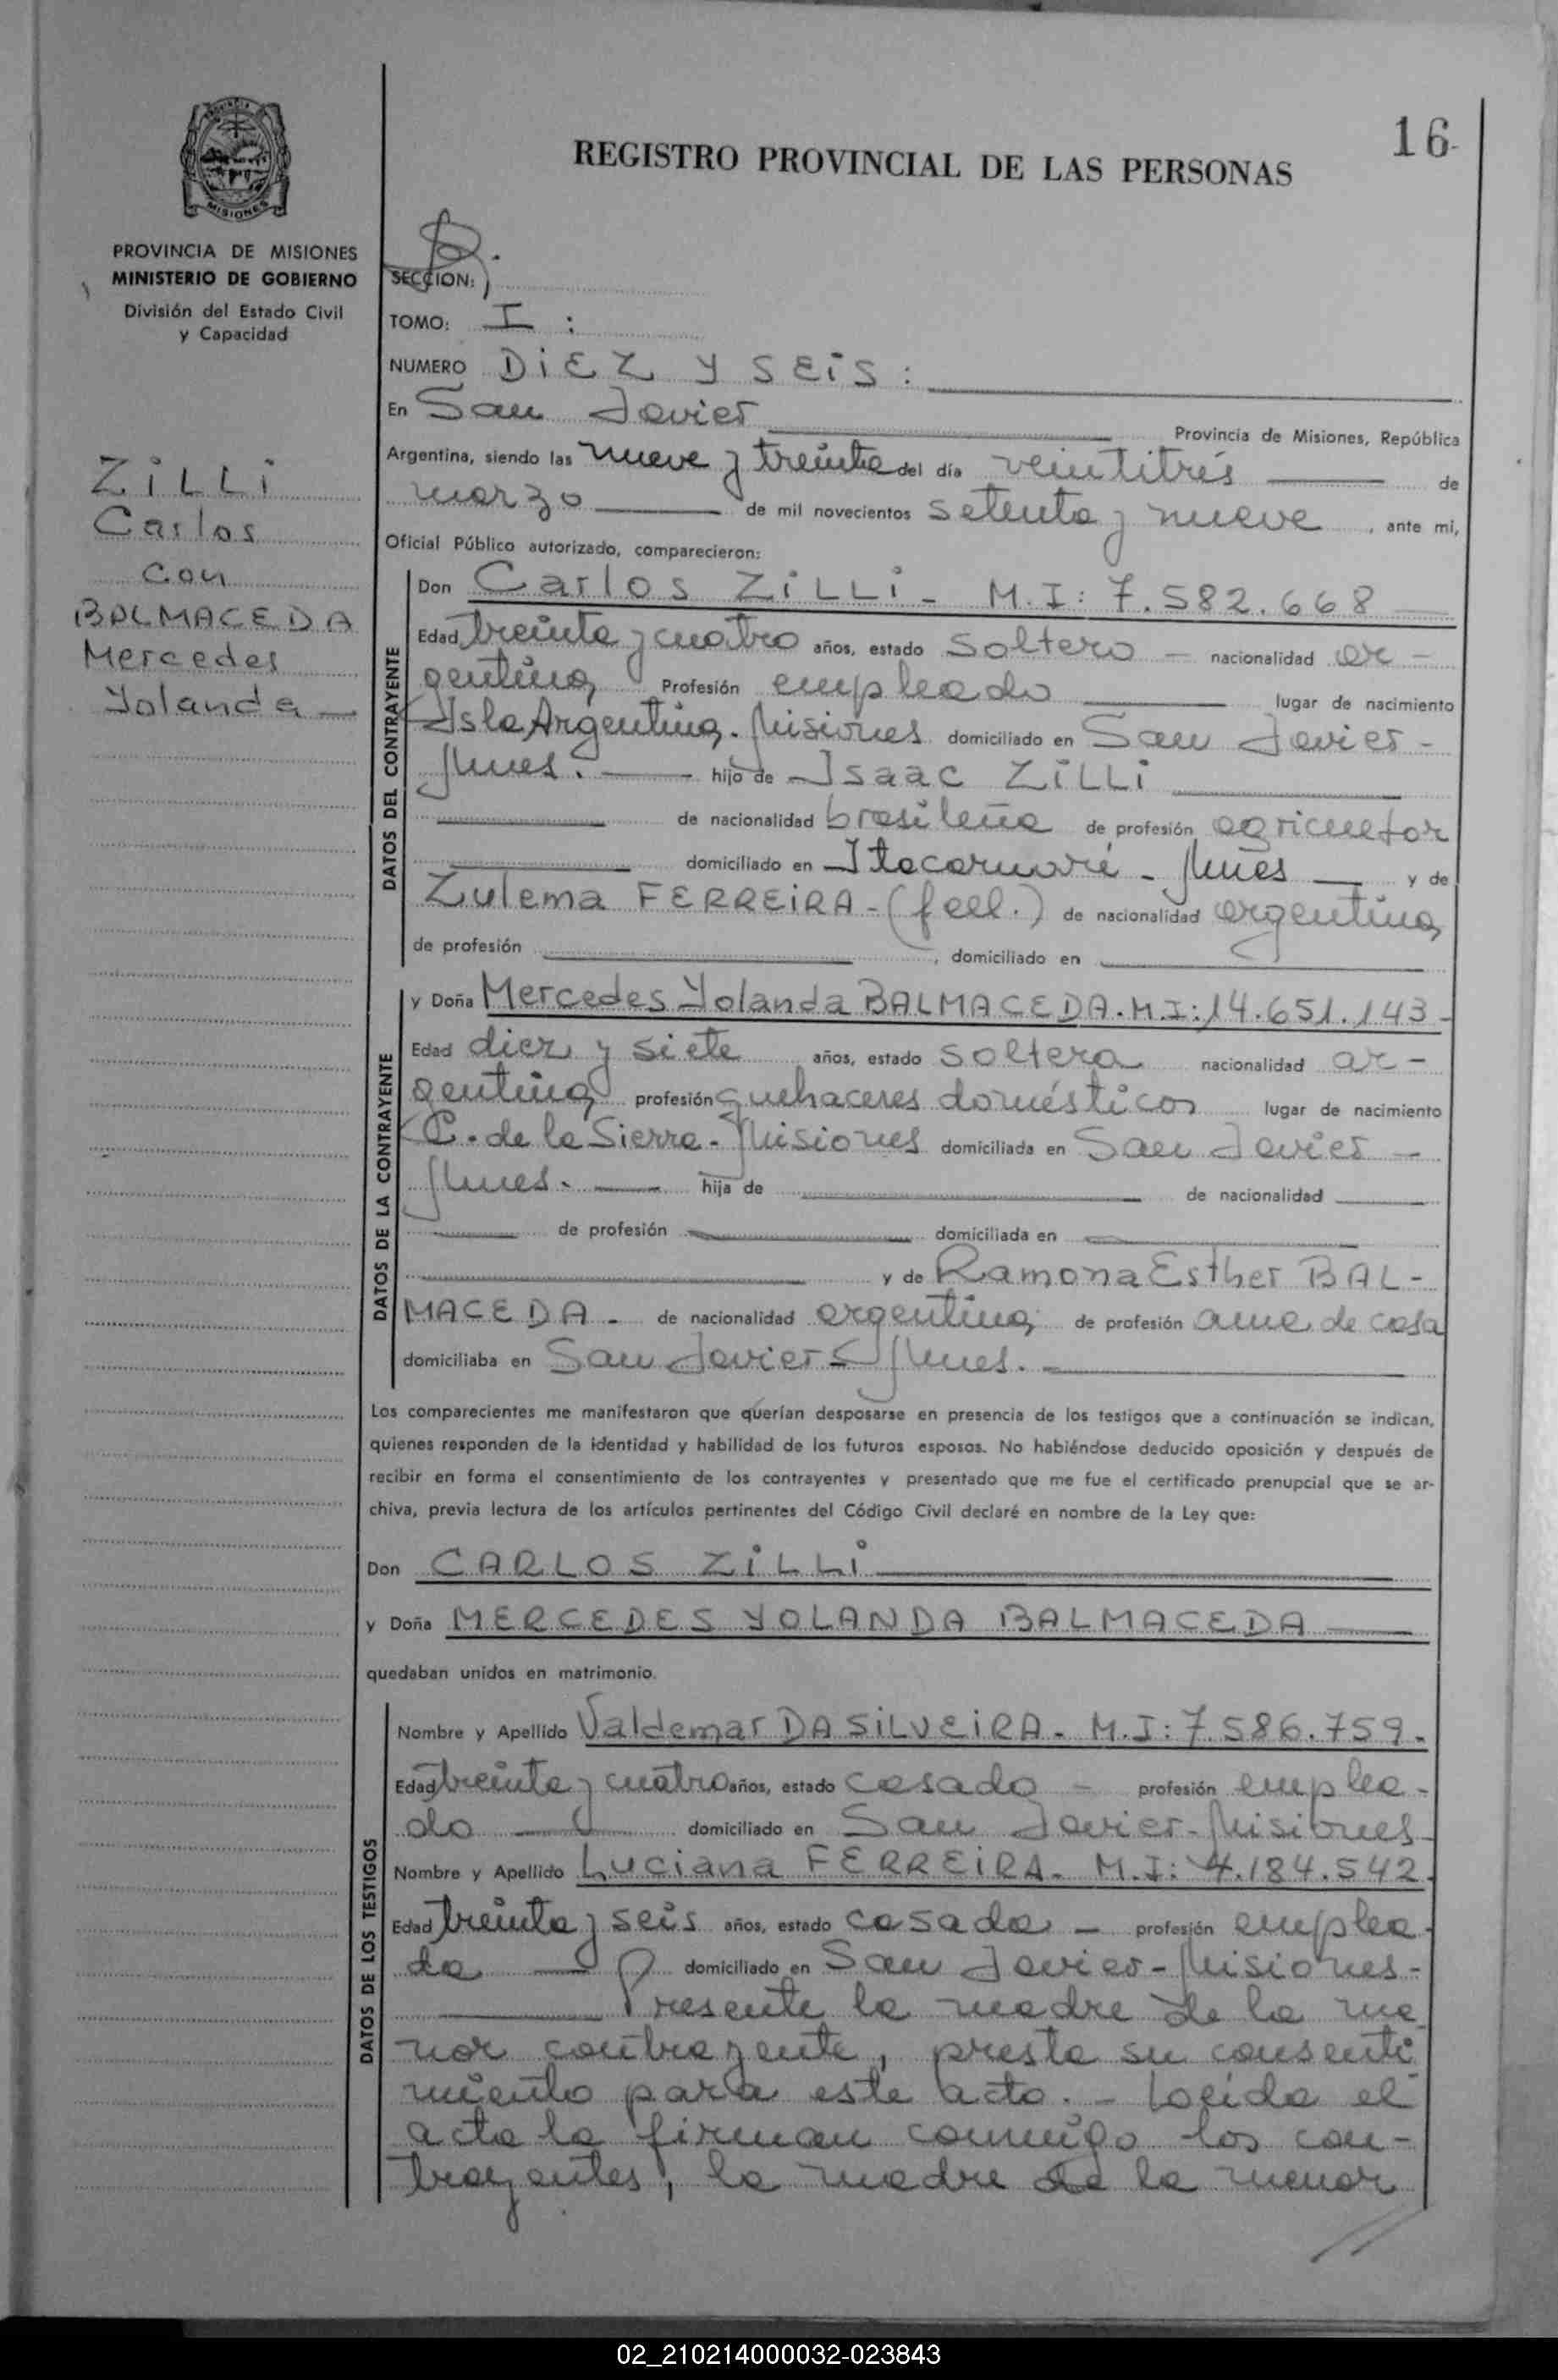 16
REGISTRO PROVINCIAL DE LAS PERSONAS
MISIONES
PROVINCIA DE MISIONES
MINISTERIO DE GOBIERNO
División del Estado Civil
y Capacidad
ZiLLi
Carlos
con
BALMACEDA
Mercedes
Yolanda
SECCION:
TOMO: I :
NUMERO DiEZ y SEiS :
En San Javier Provincia de Misiones, República
Argentina, siendo las nueve y treinta del día veintitrés de
marzo de mil novecientos setenta y nueve , ante mi,
Oficial Público autorizado, comparecieron:
DATOS DEL CONTRAYENTE
Don Carlos ZiLLi - M.I: 7.582.668
Edad treinta y cuatro años, estado soltero - nacionalidad ar-
gentina Profesión empleado lugar de nacimiento
Isla Argentina. Misiones domiciliado en San Javier -
Mnes. hijo de Isaac ZiLLi
de nacionalidad brasileña de profesión agricultor
domiciliado en Itacaruaré - Mnes y de
Zulema FERREiRA - (fall.) de nacionalidad argentina
de profesión , domiciliado en
DATOS DE LA CONTRAYENTE
y Doña Mercedes Yolanda BALMACEDA. M.I: 14.651.143 -
Edad diez y siete años, estado soltera nacionalidad ar-
gentina profesión quehaceres domésticos lugar de nacimiento
C. de la Sierra - Misiones domiciliada en San Javier -
Mnes. - hija de de nacionalidad
de profesión domiciliada en
y de Ramona Esther BAL-
MACEDA - de nacionalidad argentina de profesión ama de casa
domiciliaba en San Javier - Mnes. -
Los comparecientes me manifestaron que querían desposarse en presencia de los testigos que a continuación se indican,
quienes responden de la identidad y habilidad de los futuros esposos. No habiéndose deducido oposición y después de
recibir en forma el consentimiento de los contrayentes y presentado que me fue el certificado prenupcial que se ar-
chiva, previa lectura de los artículos pertinentes del Código Civil declaré en nombre de la Ley que:
Don CARLOS ZiLLi
y Doña MERCEDES YOLANDA BALMACEDA
quedaban unidos en matrimonio.
DATOS DE LOS TESTIGOS
Nombre y Apellido Valdemar DA SiLVEiRA - M.I: 7.586.759.
Edad treinta y cuatro años, estado casado - profesión emplea-
do domiciliado en San Javier - Misiones
Nombre y Apellido Luciana FERREiRA - M.I: 4.184.542.
Edad treinta y seis años, estado casada - profesión emplea-
da domiciliado en San Javier - Misiones -
Presente la madre de la me
nor contrayente, presta su consenti
miento para este acto. - Leída el
acta la firman conmigo los con-
trayentes, la madre de la menor
02_210214000032-023843